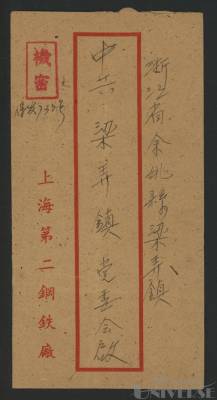 浙江省余姚縣梁弄鎮
中共梁弄鎮党委会啟
機密
上海第二鋼鉄廠
UNIVERSE